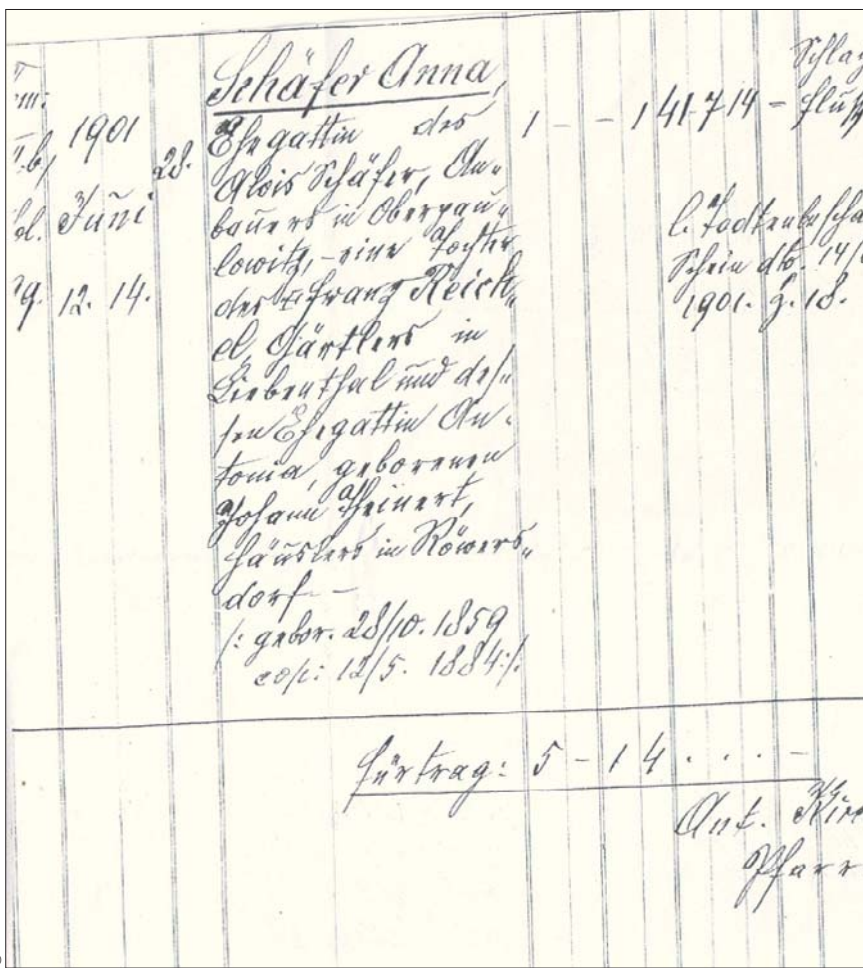 1901
Juni
12. 14.
28.
Schäfer Anna,
Ehegattin des
Alois Schäfer, An„
bauers in Oberpau„
lowitz, – eine Tochter
des † Franz Reich„
el, Gärtlers in
Liebenthal und des„
sen Ehegattin An„
tonia, geborenen
Johann Theinert,
Häuslers in Röwers„
dorf –
/: gebor. 28/10. 1859
cop: 12/5. 1884 :/.
1 – – 1 41 7 14 –
Schlag
fluß
l. Todtenbescha
Schein dto. 14/
1901. Z. 18.
Fürtrag: 5 – 1 4 . . . –
Ant.
Pfarr